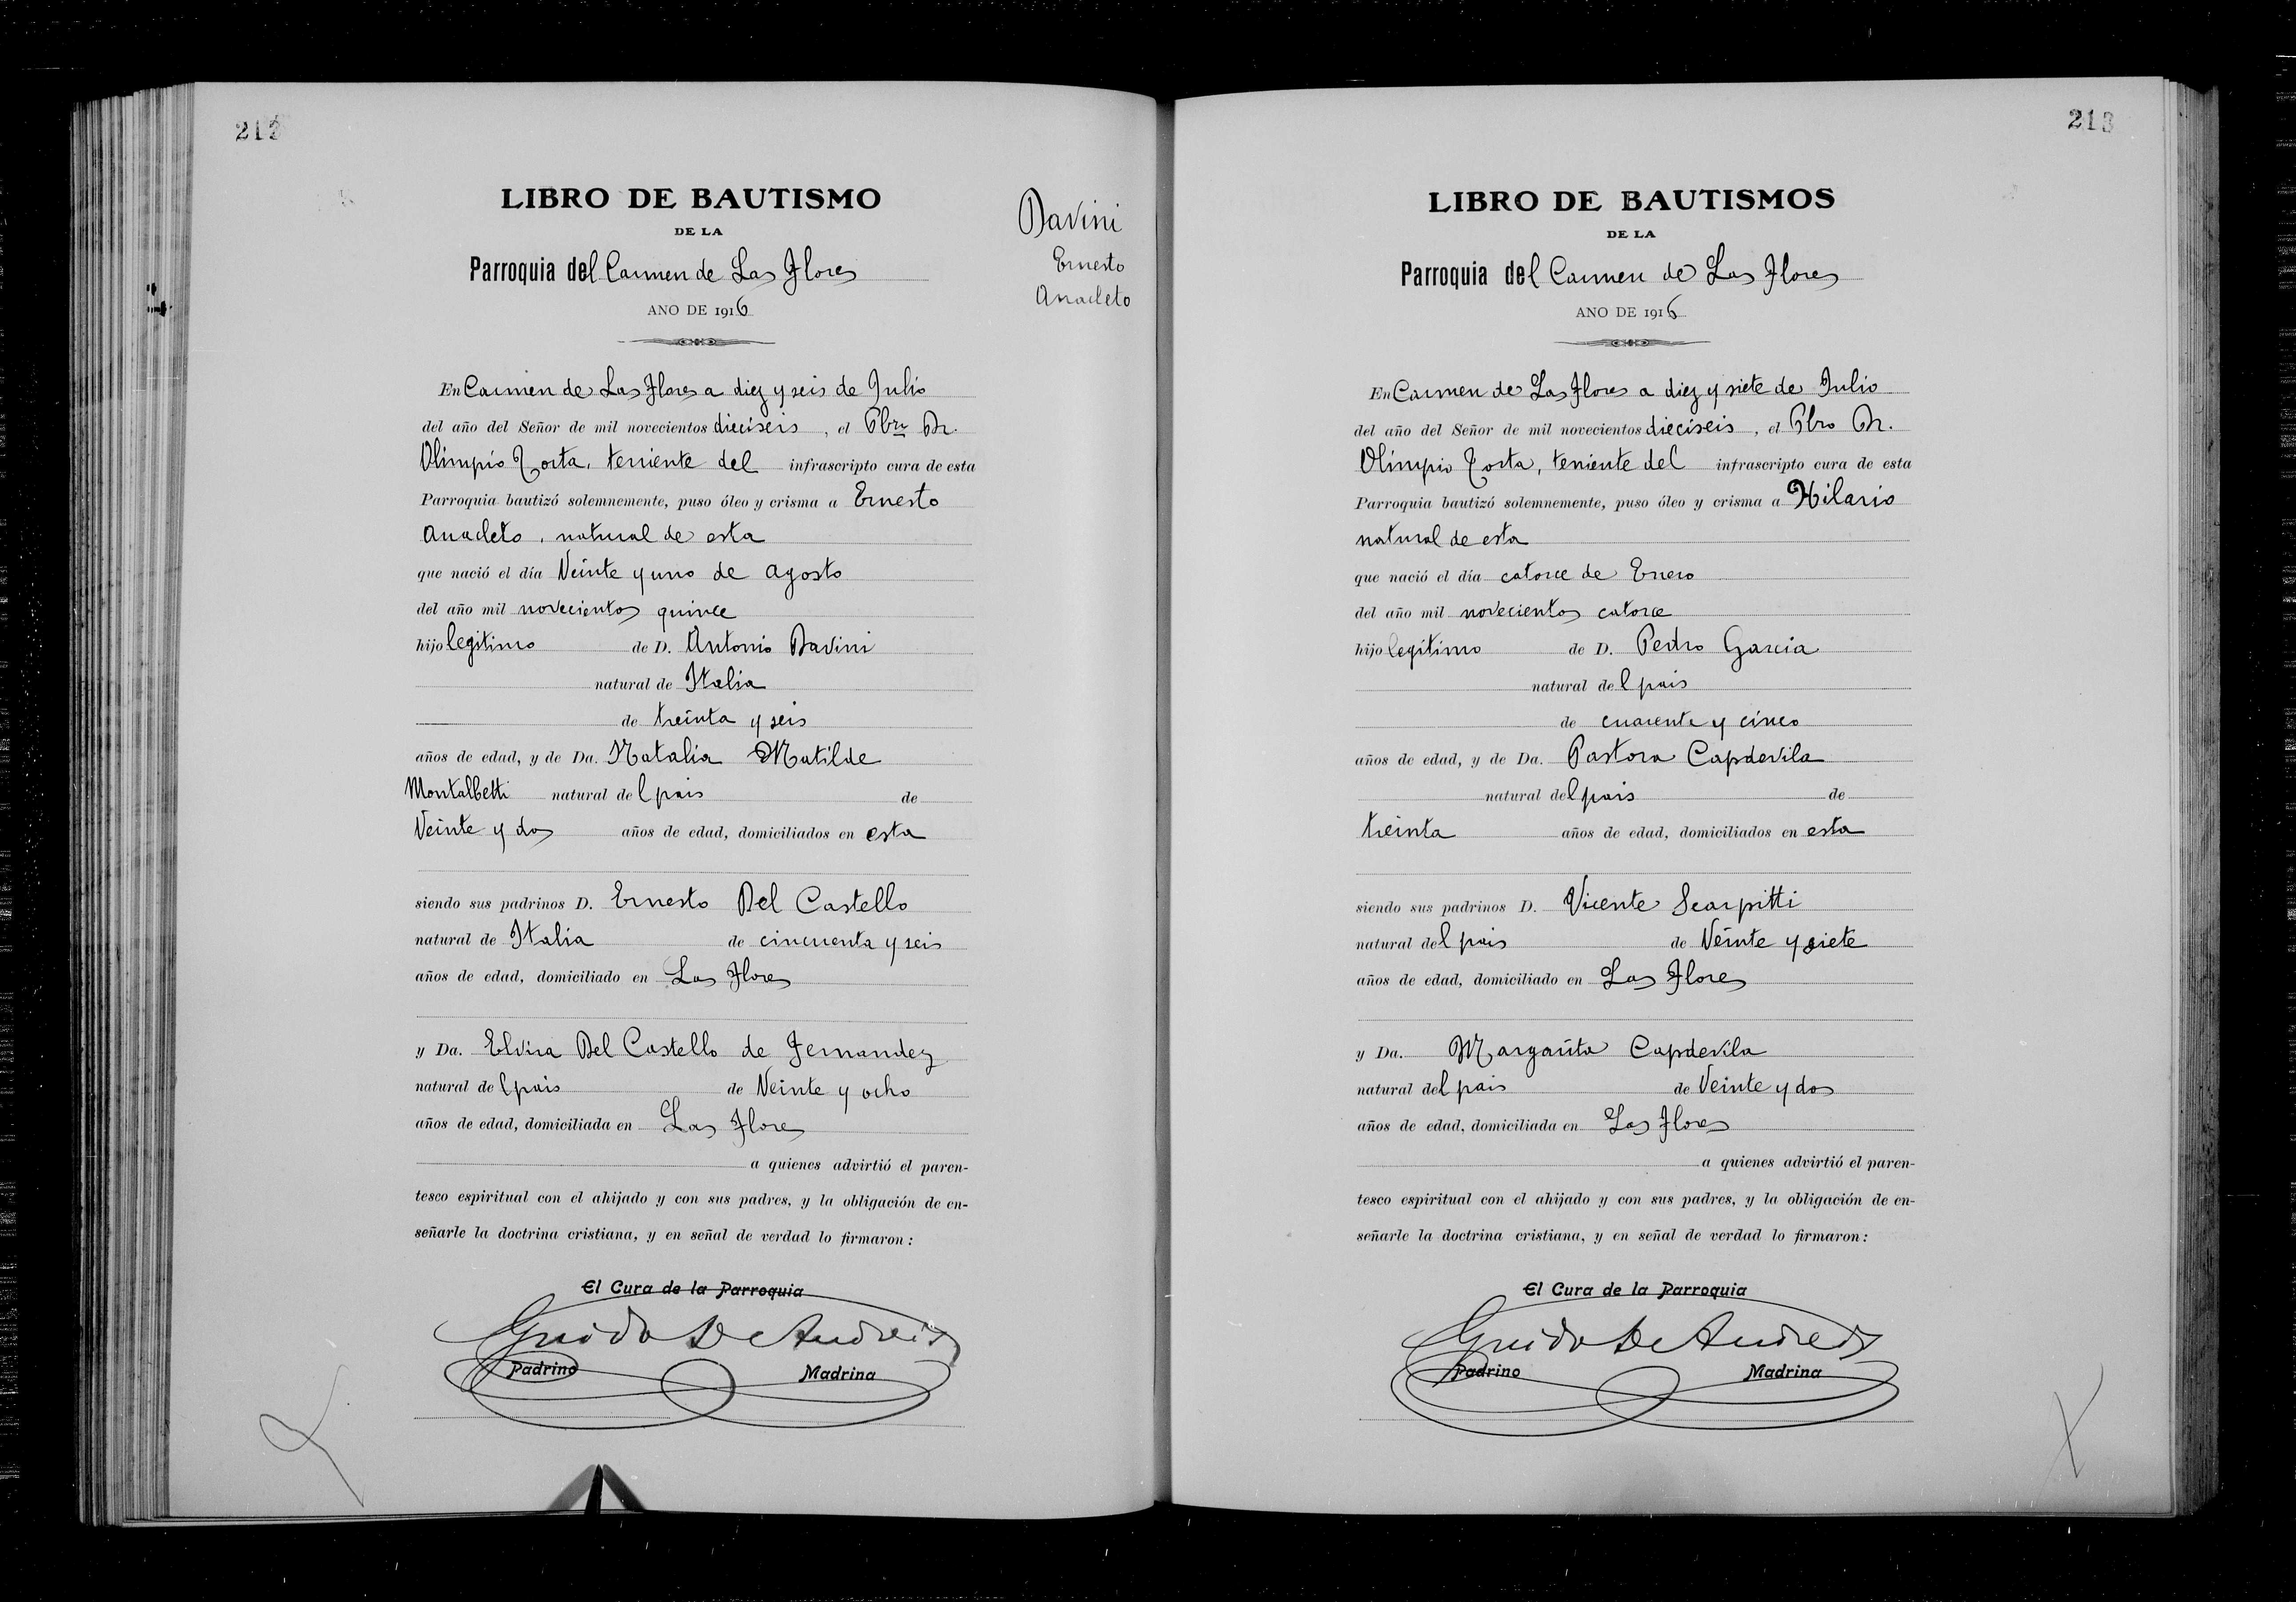 212
LIBRO DE BAUTISMO
DE LA
Parroquia del Carmen de Las Flores
AÑO DE 1916
Davini
Ernesto
Anacleto
En Carmen de Las Flores a diez y seis de Julio
del año del Señor de mil novecientos dieciseis, el Pbro Dr.
Olimpio Torta, teniente del infrascripto cura de esta
Parroquia bautizó solemnemente, puso óleo y crisma a Ernesto
Anacleto, natural de esta
que nació el día Veinte y uno de Agosto
del año mil novecientos quince
hijo legitimo de D. Antonio Davini
natural de Italia
de treinta y seis
años de edad, y de Da. Natalia Matilde
Montalbetti natural del pais de
Veinte y dos años de edad, domiciliados en esta
siendo sus padrinos D. Ernesto Del Castello
natural de Italia de cincuenta y seis
años de edad, domiciliado en Las Flores
y Da. Elvira Del Castello de Fernandez
natural del pais de Veinte y ocho
años de edad, domiciliada en Las Flores
a quienes advirtió el paren-
tesco espiritual con el ahijado y con sus padres, y la obligación de en-
señarle la doctrina cristiana, y en señal de verdad lo firmaron:
El Cura de la Parroquia
Guido De Andreis
Padrino Madrina
213
LIBRO DE BAUTISMOS
DE LA
Parroquia del Carmen de Las Flores
AÑO DE 1916
En Carmen de Las Flores a diez y siete de Julio
del año del Señor de mil novecientos dieciseis, el Pbro Dr.
Olimpio Torta, teniente del infrascripto cura de esta
Parroquia bautizó solemnemente, puso óleo y crisma a Hilario
natural de esta
que nació el día catorce de Enero
del año mil novecientos catorce
hijo legitimo de D. Pedro Garcia
natural del pais
de cuarenta y cinco
años de edad, y de Da. Pastora Capdevila
natural del pais de
treinta años de edad, domiciliados en esta
siendo sus padrinos D. Vicente Scarpitti
natural del pais de Veinte y siete
años de edad, domiciliado en Las Flores
y Da. Margarita Capdevila
natural del pais de Veinte y dos
años de edad, domiciliada en Las Flores
a quienes advirtió el paren-
tesco espiritual con el ahijado y con sus padres, y la obligación de en-
señarle la doctrina cristiana, y en señal de verdad lo firmaron:
El Cura de la Parroquia
Guido De Andreis
Padrino Madrina